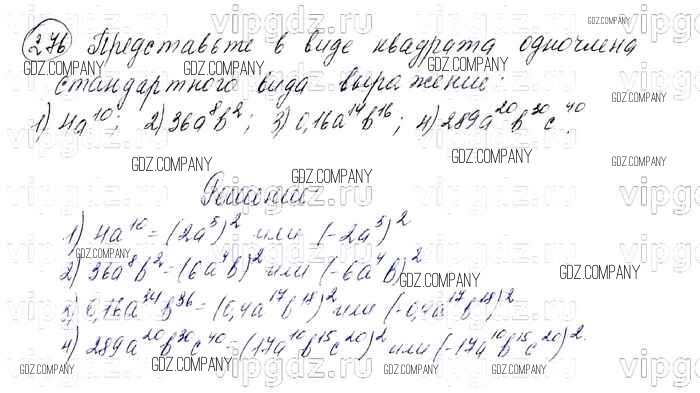 276 Представьте в виде квадрата одночлена
стандартного вида выражение:
1) 4a^10; 2) 36a^8b^2; 3) 0,16a^14b^16; 4) 289a^20b^30c^40.
Решение
1) 4a^10 = (2a^5)^2 или (-2a^5)^2
2) 36a^8b^2 = (6a^4b)^2 или (-6a^4b)^2
3) 0,16a^34b^36 = (0,4a^17b^18)^2 или (-0,4a^17b^18)^2
4) 289a^20b^30c^40 = (17a^10b^15c^20)^2 или (-17a^10b^15c^20)^2.
GDZ.COMPANY
vipgdz.ru